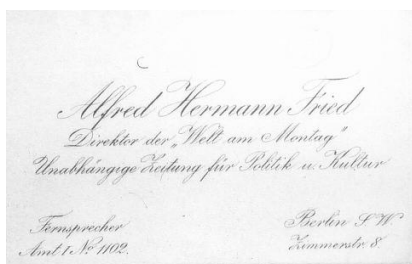 Alfred Hermann Fried
Direktor der „Welt am Montag"
Unabhängige Zeitung für Politik u. Kultur
Fernsprecher
Amt I No 1102.
Berlin SW
Zimmerstr. 8